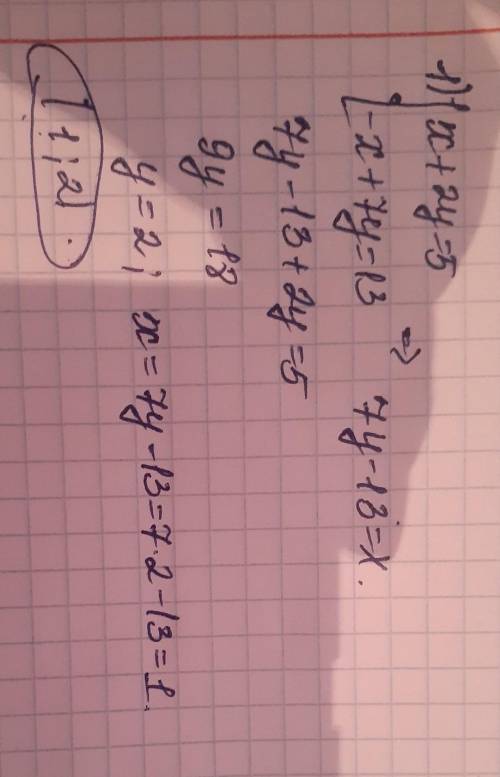 1) { x + 2y = 5
{ -x + 7y = 13 ⇒ 7y - 13 = x.
7y - 13 + 2y = 5
9y = 18
y = 2; x = 7y - 13 = 7·2 - 13 = 1.
(1; 2).